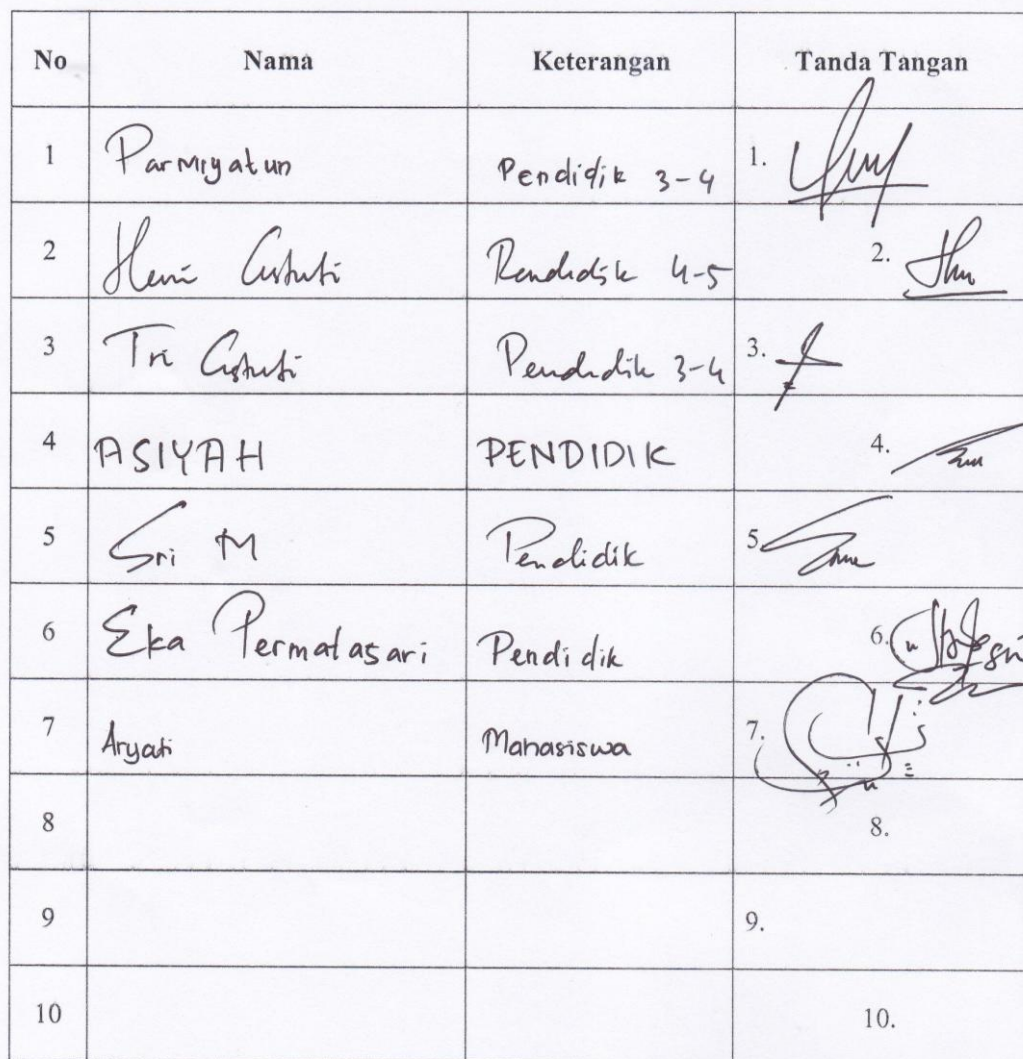 No Nama Keterangan Tanda Tangan
1 Parmiyatun Pendidik 3-4 1.
2 Heni Astuti Pendidik 4-5 2.
3 Tri Astuti Pendidik 3-4 3.
4 ASIYAH PENDIDIK 4.
5 Sri M Pendidik 5.
6 Eka Permatasari Pendidik 6.
7 Aryati Mahasiswa 7.
8 8.
9 9.
10 10.